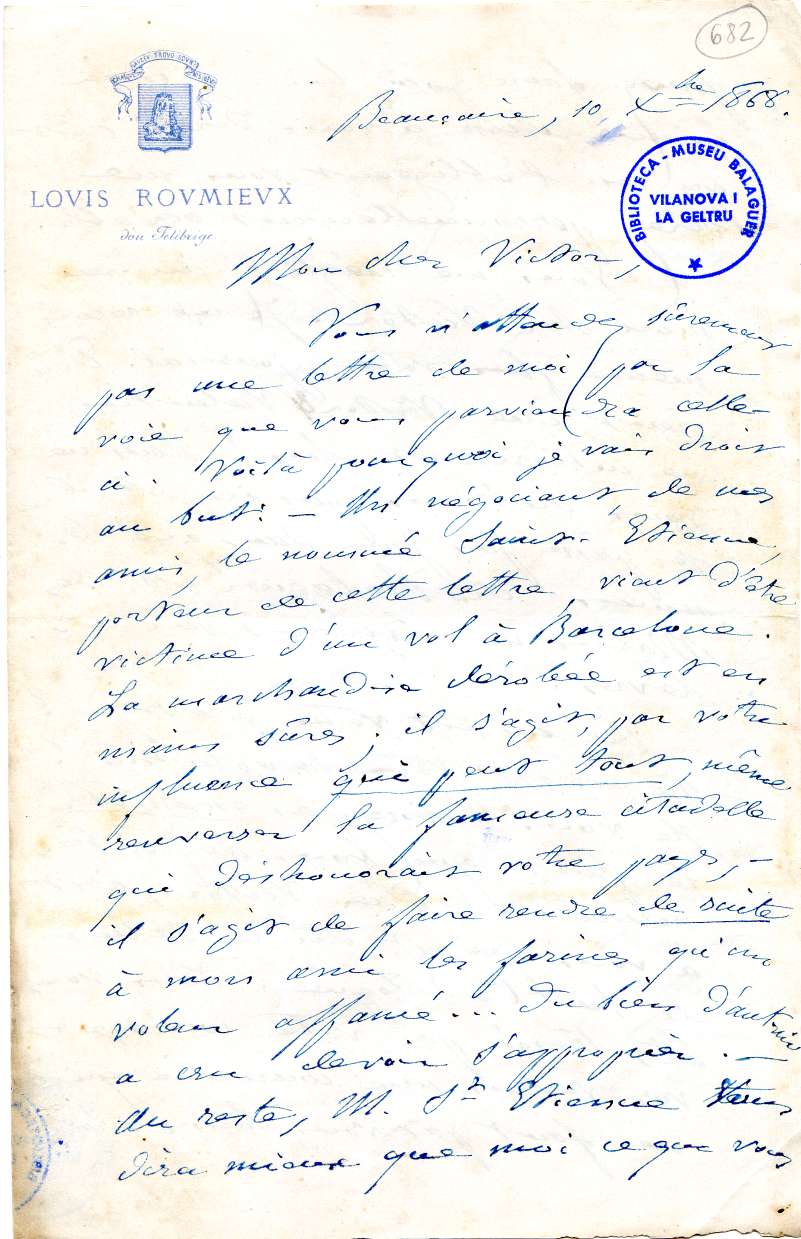 682
LOVIS ROVMIEVX
dóu Felibrige.
BIBLIOTECA - MUSEU BALAGUER
VILANOVA I
LA GELTRU
Beaucaire, 10, Xbre 1868.
Mon cher Victor,
Vous n'attendez sûrement
pas une lettre de moi par la
voie que vous parviendra celle-
ci. Voilà pourquoi je vais droit
au but: — Un négociant, de mes
amis, le nommé Saint-Etienne,
porteur de cette lettre, vient d'être
victime d'un vol à Barcelone.
La marchandise dérobée est en
mains sûres; il s'agit, par votre
influence qui peut tout, même
renverser la fameuse citadelle
qui déshonorait votre pays, —
il s'agit de faire rendre de suite
à mon ami les farines qu'un
voleur affamé... du bien d'autrui
a cru devoir s'approprier. —
Du reste, M. St Etienne vous
dira mieux que moi ce que vous